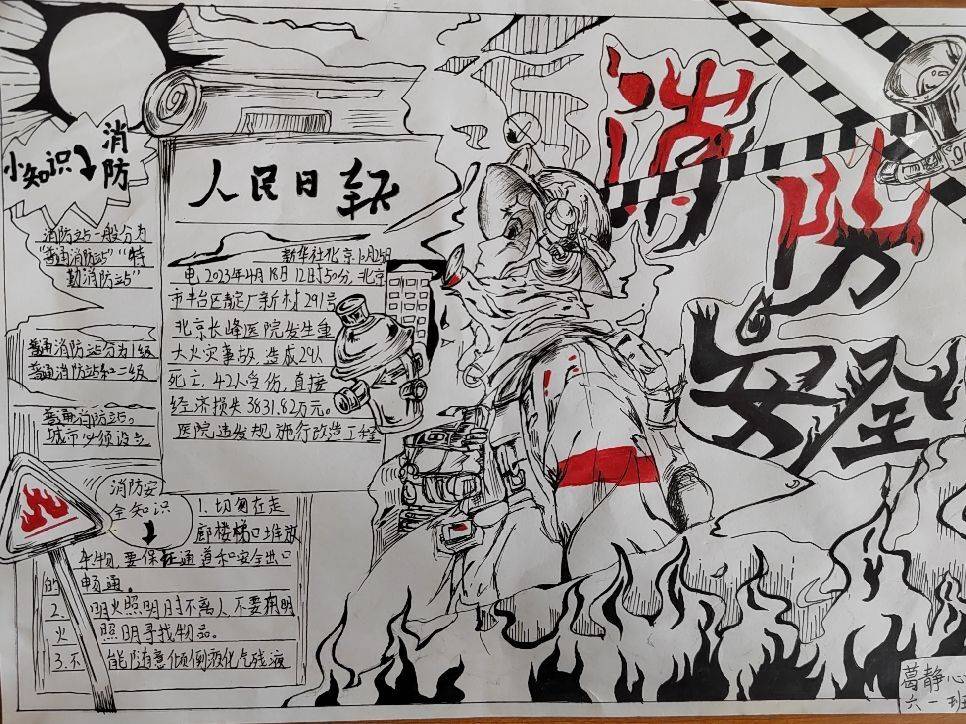 消防安全
小知识
消防
消防站一般分为
“普通消防站”“特
勤消防站”
普通消防站分为1级
普通消防站和二级
普通消防站。
城市必须设立
人民日报
新华社北京10月25日
电 2023年4月18日12时50分，北京
市丰台区靛厂新村291号
北京长峰医院发生重
大火灾事故，造成29人
死亡，42人受伤，直接
经济损失3831.82万元。
医院违发规施行改造工程
消防安
全知识
1.切匆在走
廊楼梯口堆放
杂物，要保证通道和安全出口
的畅通。
2.明火照明时不离人，不要用明
火照明寻找物品。
3.不能随意倾倒液化气残液
葛静心
六一班